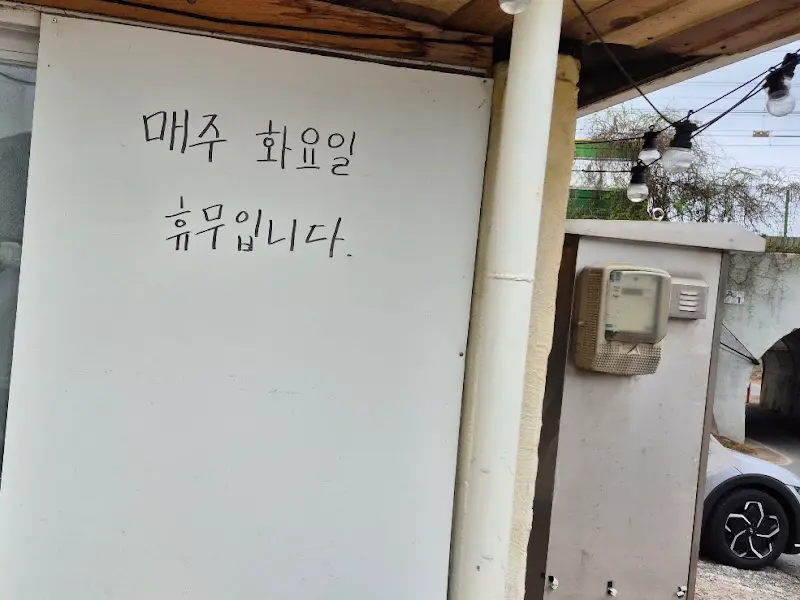 매주 화요일
휴무입니다.